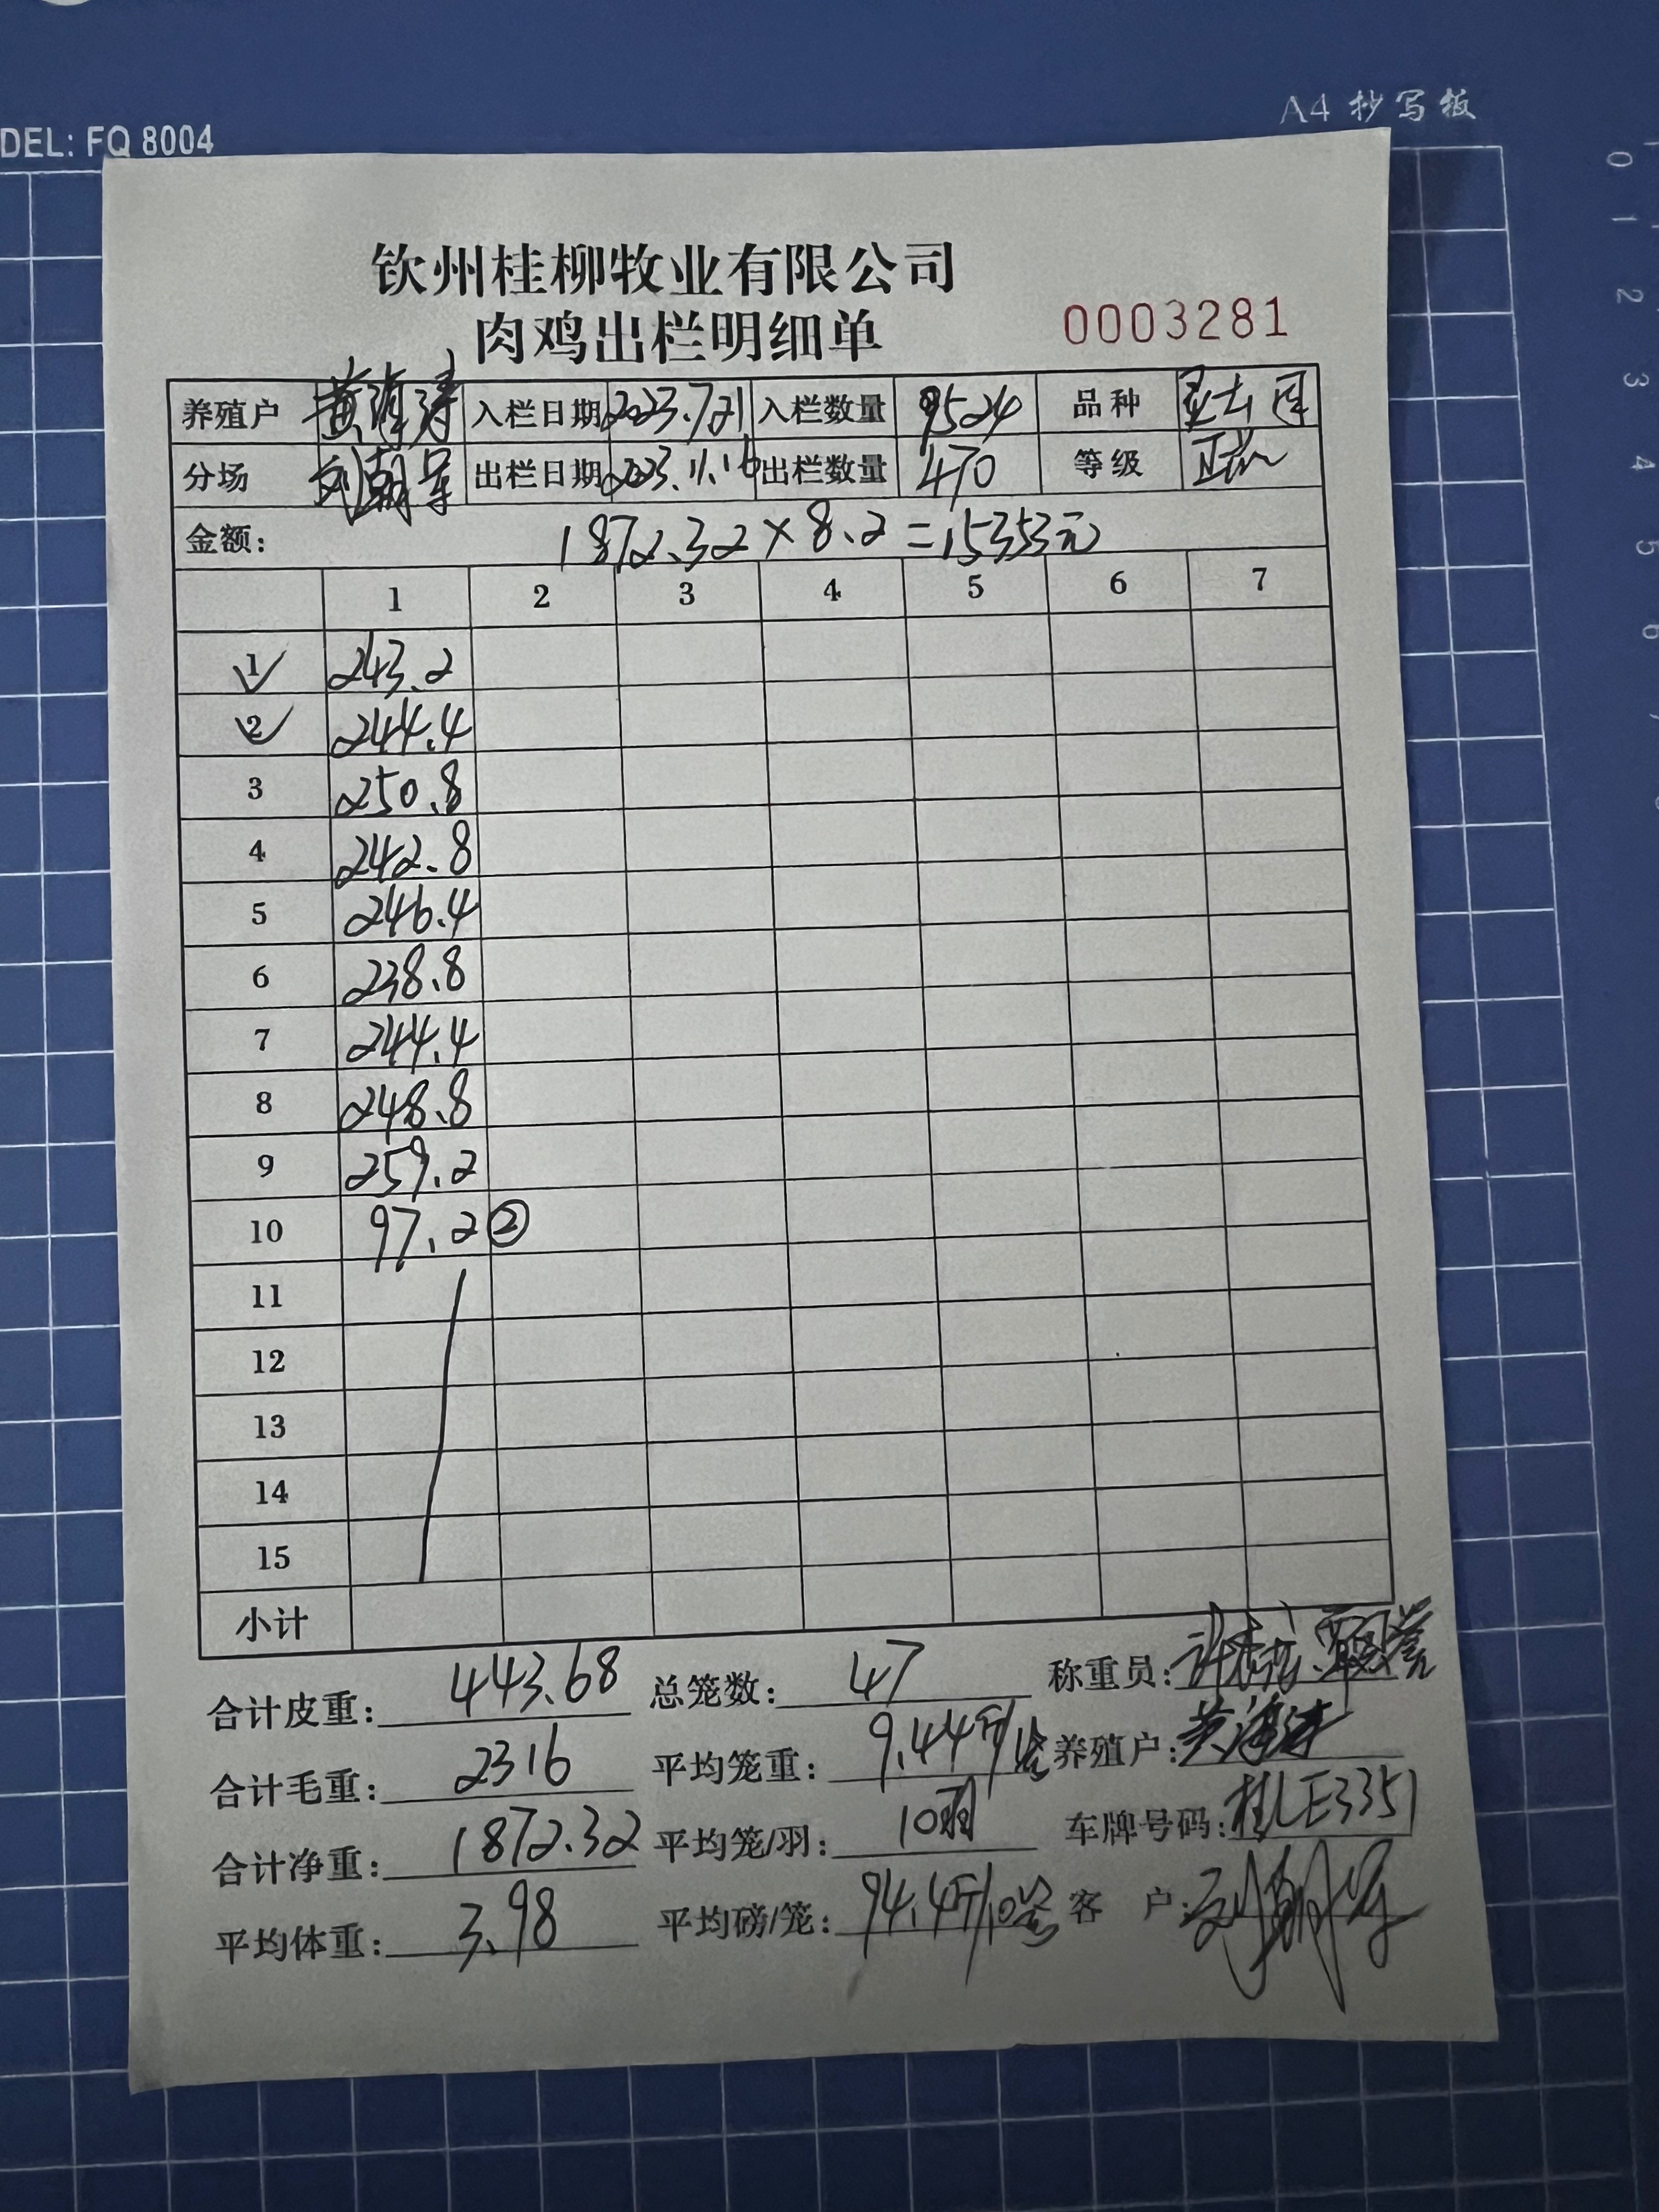 A4 抄写板
DEL: FQ 8004
0 1 2 3 4 5 6
钦州桂柳牧业有限公司
肉鸡出栏明细单 0003281
养殖户 黄海涛 入栏日期 2023.7.21 入栏数量 9524 品种
分场 出栏日期 2023.11.16 出栏数量 470 等级
金额: 1872.32×8.2=15353元
1 2 3 4 5 6 7
1 243.2
2 244.4
3 250.8
4 242.8
5 246.4
6 238.8
7 244.4
8 248.8
9 259.2
10 97.2 ②
11
12
13
14
15
小计
合计皮重: 443.68 总笼数: 47 称重员:
合计毛重: 2316 平均笼重: 9.44斤/笼 养殖户: 黄海涛
合计净重: 1872.32 平均笼/羽: 10羽 车牌号码: 桂LE3351
平均体重: 3.98 平均磅/笼: 94.4斤/10笼 客 户: